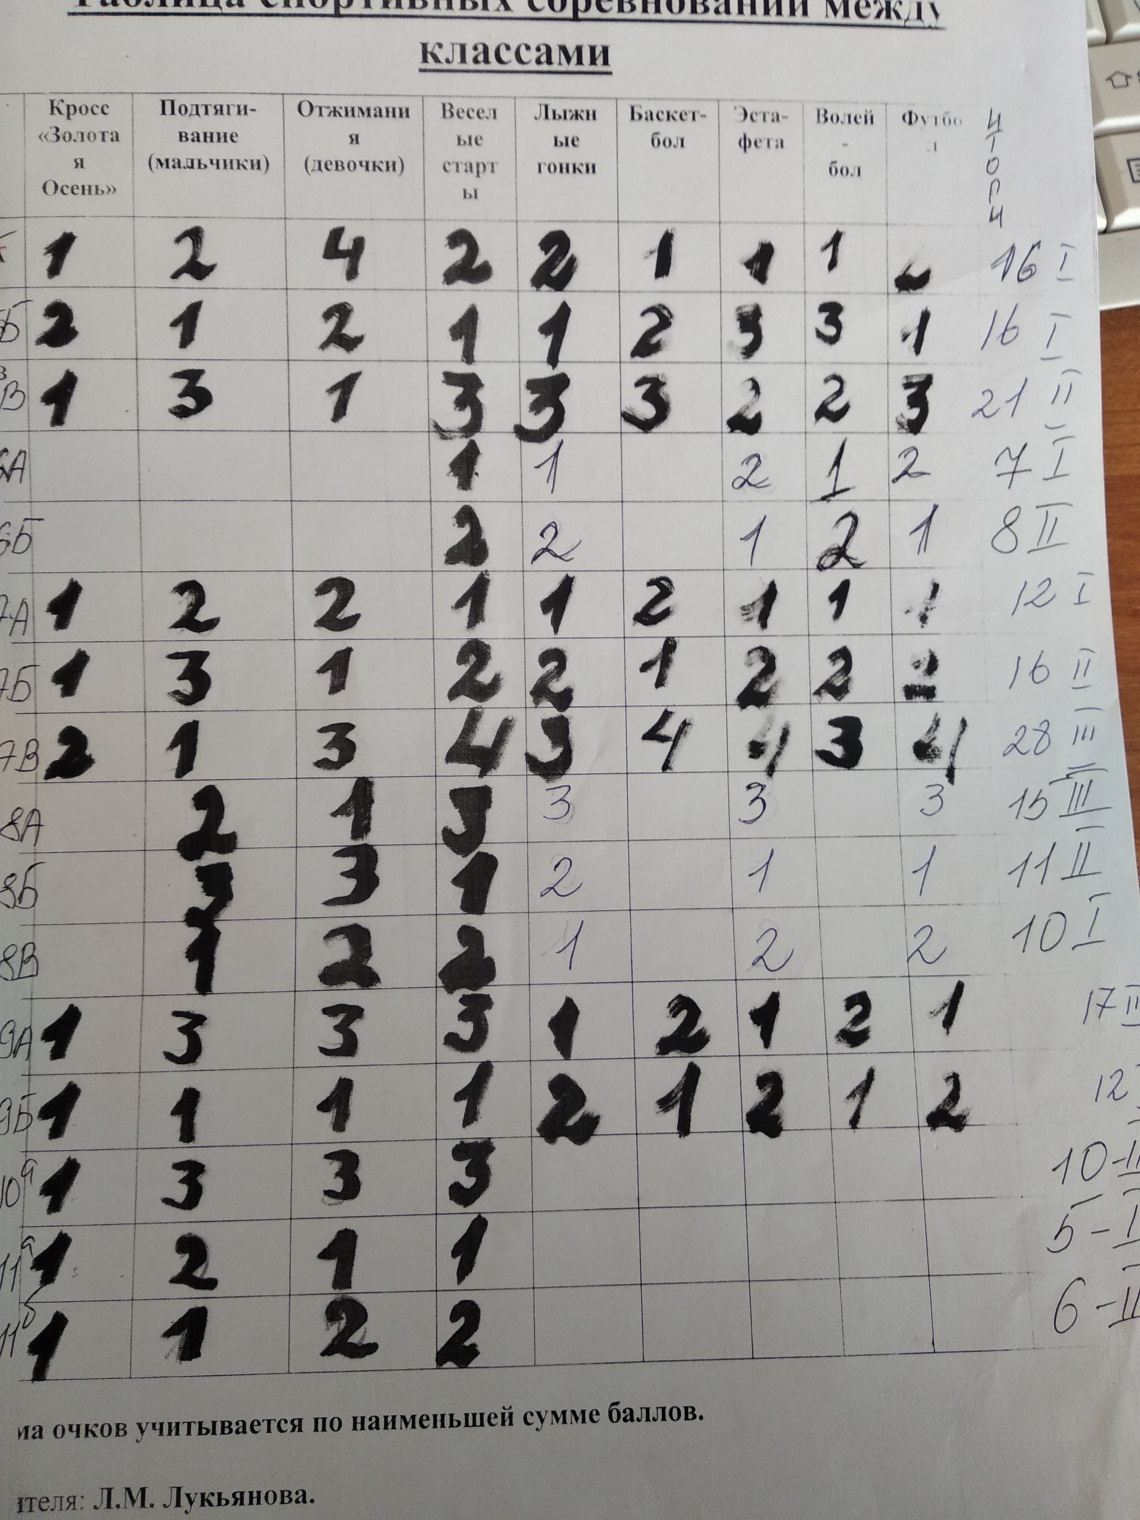 Таблица спортивных соревнований между
классами
Кросс «Золотая Осень» Подтяги-вание (мальчики) Отжимания (девочки) Веселые старты Лыжные гонки Баскет-бол Эста-фета Волей-бол Футбол Итоги
1 2 4 2 2 1 1 1 2 16 I
5Б 2 1 2 1 1 2 3 3 1 16 I
В 1 3 1 3 3 3 2 2 3 21 II
6А 1 1 2 1 2 7 I
6Б 2 2 1 2 1 8 II
7А 1 2 2 1 1 2 1 1 1 12 I
7Б 1 3 1 2 2 1 2 2 2 16 II
7В 2 1 3 4 3 4 4 3 4 28 III
8А 2 1 3 3 3 3 15 III
8Б 3 3 1 2 1 1 11 II
8В 1 2 2 1 2 2 10 I
9А 1 3 3 3 1 2 1 2 1 17 II
9Б 1 1 1 1 2 1 2 1 2 12
10а 1 3 3 3 10-II
11а 1 2 1 1 5-I
11б 1 1 2 2 6-II
ма очков учитывается по наименьшей сумме баллов.
ителя: Л.М. Лукьянова.